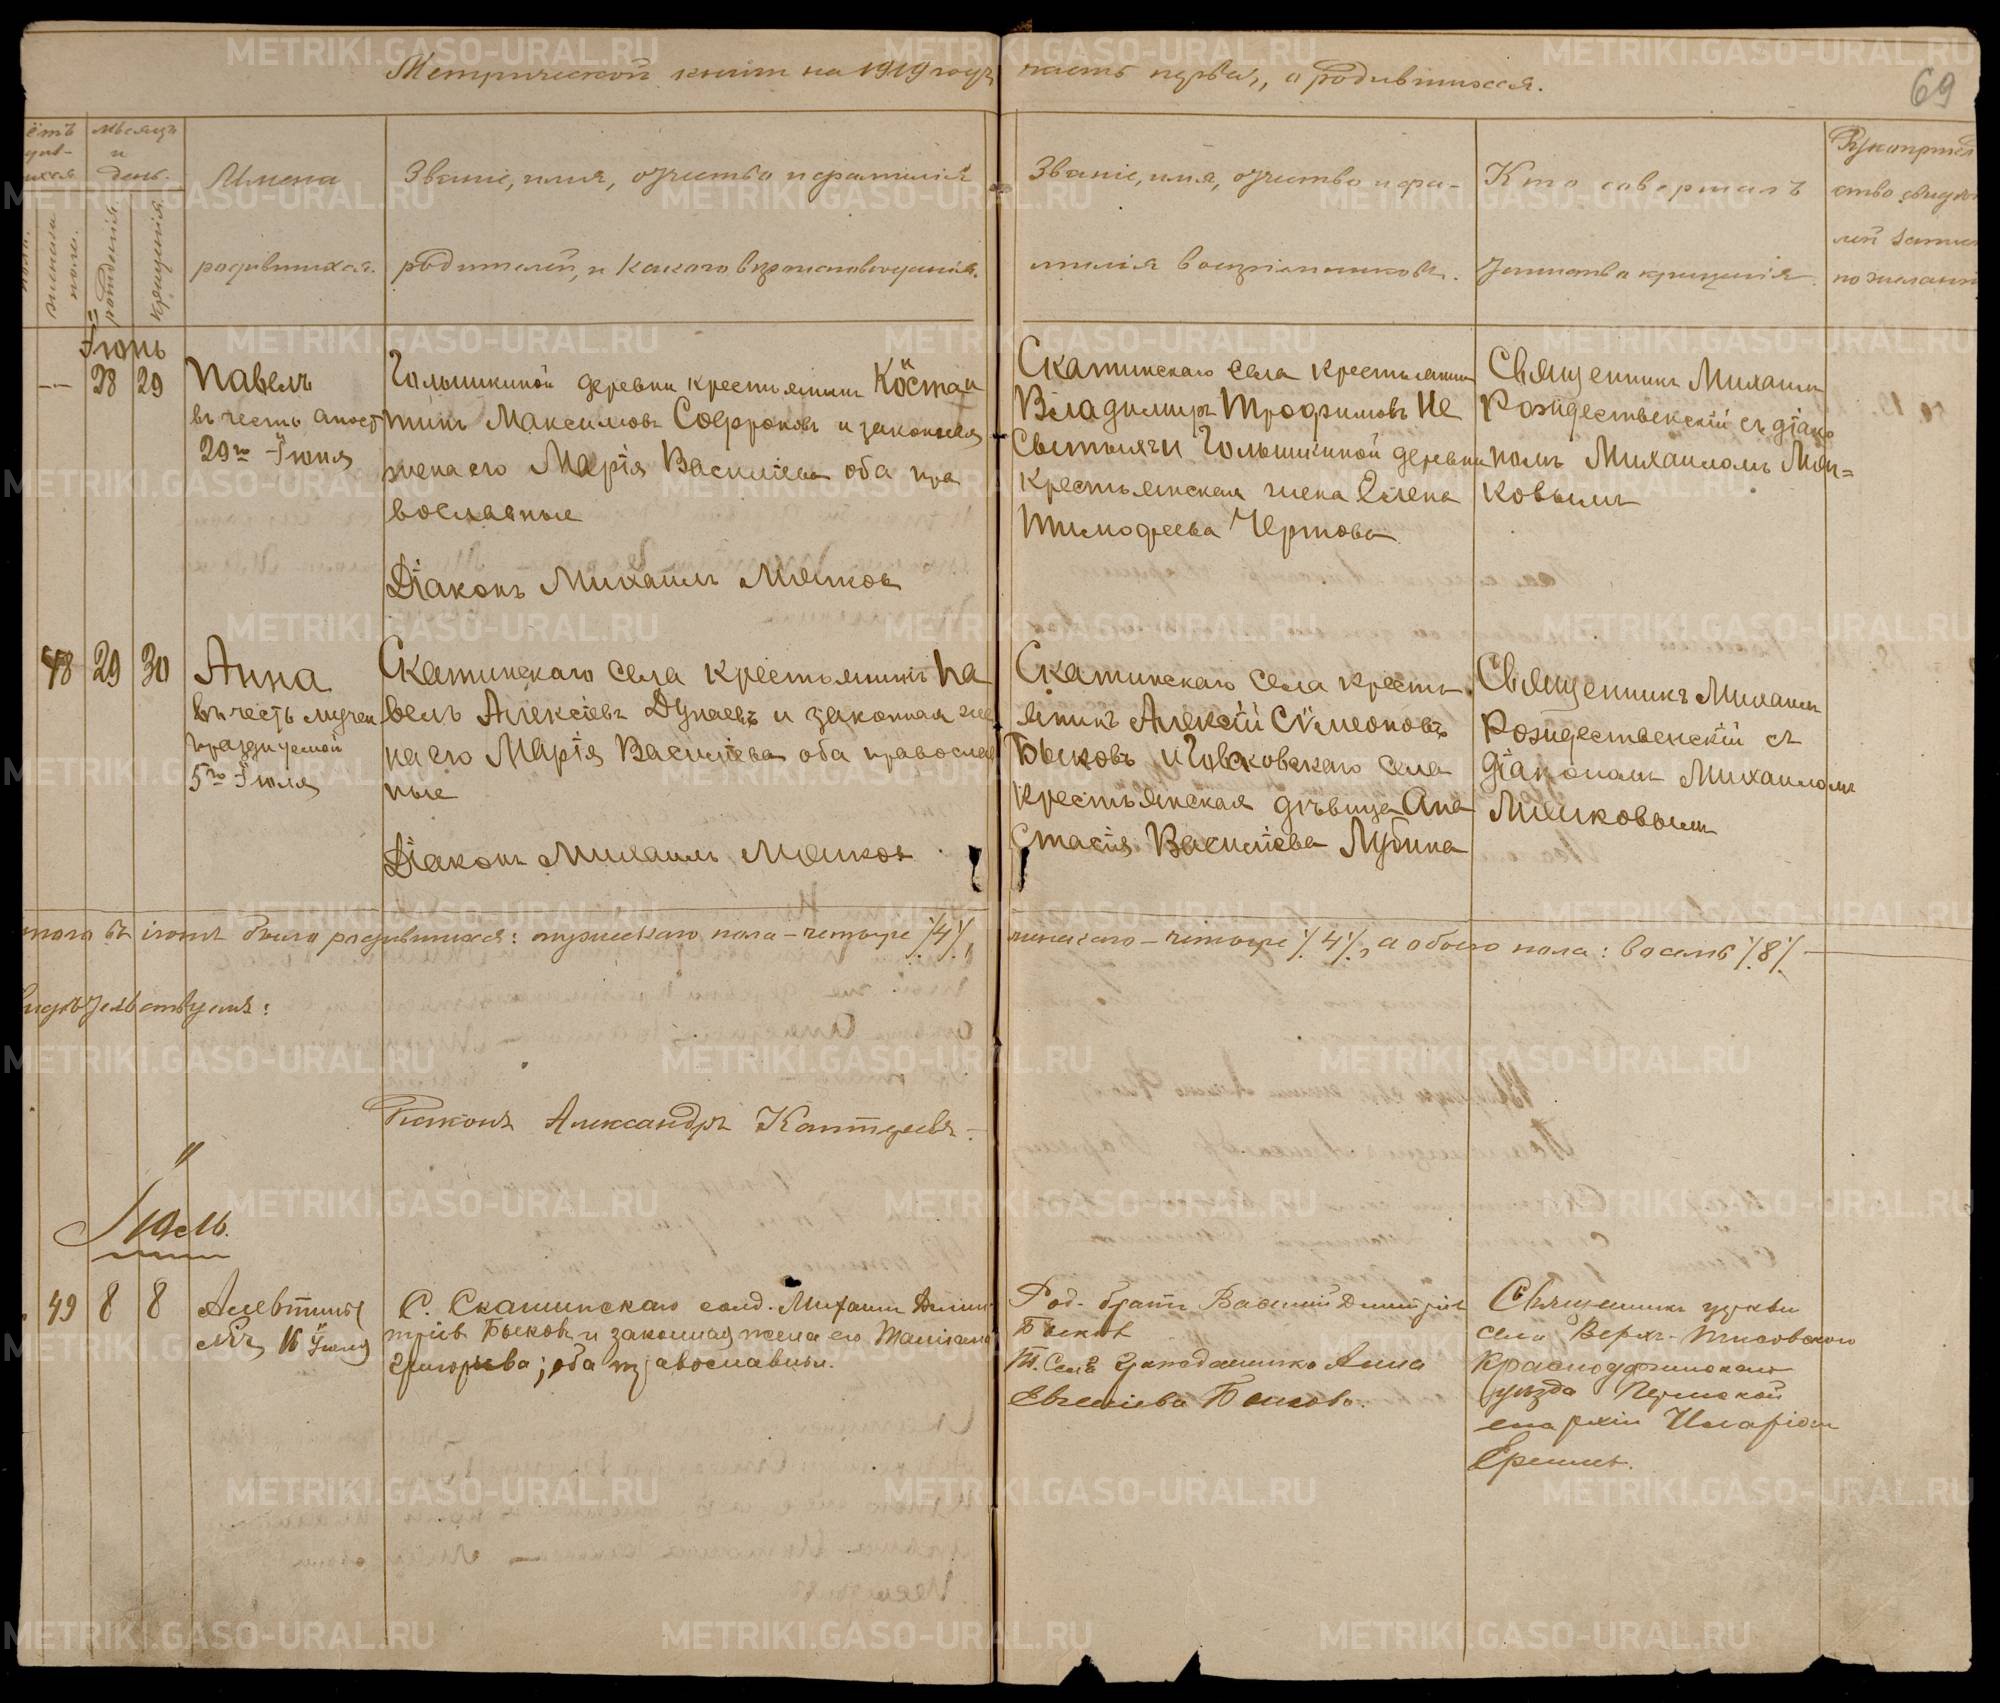 Метрической книги на 1919 годъ часть первая, о родившихся.
69
мѣсяцъ
и
день.
женска
пола.
рожденія
крещенія
Имена
родившихся.
Званіе, имя, отчество и фамилія
родителей, и какого вѣроисповѣданія.
Званіе, имя, отчество и фа-
милія воспріемниковъ.
Кто совершалъ
таинство крещенія
Рукоприклад
ство свидѣте
лей записи
по желанію
Іюнь
28 29
Павелъ
въ честь апост
29го Іюня
Голышкиной деревни крестьянинъ Констан
тинъ Максимовъ Софроновъ и законная
жена его Марія Василіева оба пра
вославные
Діаконъ Михаилъ Мяшков
Скатинскаго села крестьянинъ
Владимиръ Трофимовъ Не
Голышкиной деревни
крестьянская жена Елена
Тимофеева Чертова
Священникъ Михаилъ
Рождественскій съ діако
номъ Михаиломъ Мяш=
ковымъ
48 29 30
Анна
въ честь мучен
празднуемой
5го Іюля
Скатинскаго села крестьянинъ Па
велъ Алексіевъ Дунаевъ и законная же
на его Марія Василіева оба православ
ные
Діаконъ Михаилъ Мяшков
Скатинскаго села кресть
янинъ Алексій Сѵмеоновъ
Быковъ и села
крестьянская дѣвица Ана
стасія Василіева Лубина
Священникъ Михаилъ
Рождественскій съ
діакономъ Михаиломъ
Мяшковымъ
того въ іюнѣ было родившихся: мужескаго пола – четыре /4/, женскаго – четыре /4/, а обоего пола: восемь /8/.
идѣтельствуемъ:
Діаконъ Александръ
Іюль.
49 8 8
Алевтины
Мч. 16 Іюля
С. Скатинскаго солд. Михаилъ Дими
тріев Быковъ и законная жена его Татіана
Григорьева; оба православны.
Род. братъ Василій Димитріев
Быков
Т. Села гражданинка Анна
Евгеніева Быкова.
Священникъ церкви
села Верхъ-Тисовскаго
Красноуфимскаго
уѣзда Пермской
епархіи Иларіонъ